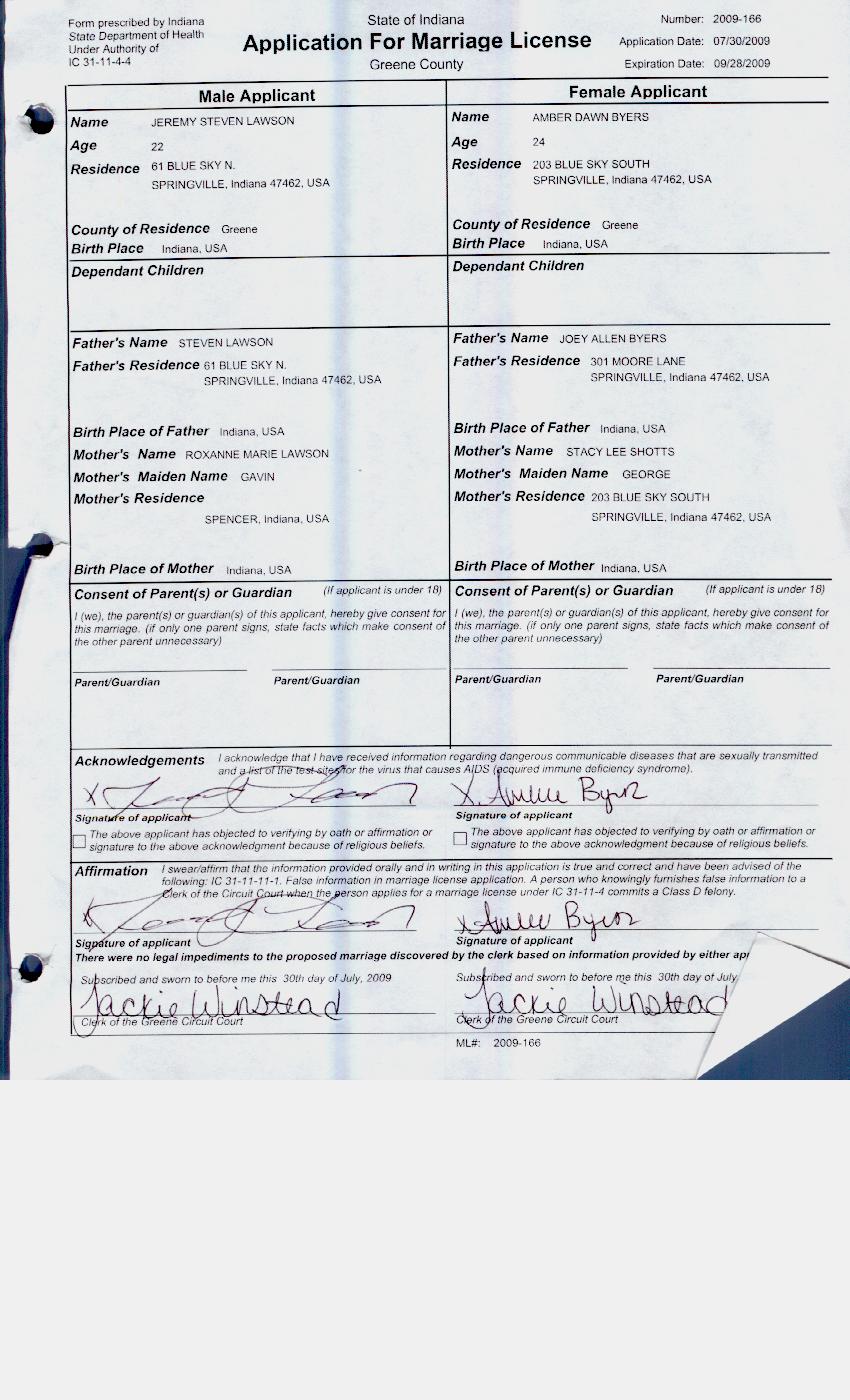 Form prescribed by Indiana
State Department of Health
Under Authority of
IC 31-11-4-4
State of Indiana
Application For Marriage License
Greene County
Number: 2009-166
Application Date: 07/30/2009
Expiration Date: 09/28/2009
Male Applicant
Name JEREMY STEVEN LAWSON
Age 22
Residence 61 BLUE SKY N.
SPRINGVILLE, Indiana 47462, USA
County of Residence Greene
Birth Place Indiana, USA
Dependant Children
Father's Name STEVEN LAWSON
Father's Residence 61 BLUE SKY N.
SPRINGVILLE, Indiana 47462, USA
Birth Place of Father Indiana, USA
Mother's Name ROXANNE MARIE LAWSON
Mother's Maiden Name GAVIN
Mother's Residence
SPENCER, Indiana, USA
Birth Place of Mother Indiana, USA
Consent of Parent(s) or Guardian (If applicant is under 18)
I (we), the parent(s) or guardian(s) of this applicant, hereby give consent for
this marriage. (if only one parent signs, state facts which make consent of
the other parent unnecessary)
Parent/Guardian Parent/Guardian
Female Applicant
Name AMBER DAWN BYERS
Age 24
Residence 203 BLUE SKY SOUTH
SPRINGVILLE, Indiana 47462, USA
County of Residence Greene
Birth Place Indiana, USA
Dependant Children
Father's Name JOEY ALLEN BYERS
Father's Residence 301 MOORE LANE
SPRINGVILLE, Indiana 47462, USA
Birth Place of Father Indiana, USA
Mother's Name STACY LEE SHOTTS
Mother's Maiden Name GEORGE
Mother's Residence 203 BLUE SKY SOUTH
SPRINGVILLE, Indiana 47462, USA
Birth Place of Mother Indiana, USA
Consent of Parent(s) or Guardian (If applicant is under 18)
I (we), the parent(s) or guardian(s) of this applicant, hereby give consent for
this marriage. (if only one parent signs, state facts which make consent of
the other parent unnecessary)
Parent/Guardian Parent/Guardian
Acknowledgements I acknowledge that I have received information regarding dangerous communicable diseases that are sexually transmitted
and a list of the test sites for the virus that causes AIDS (acquired immune deficiency syndrome).
X X
Signature of applicant Signature of applicant
The above applicant has objected to verifying by oath or affirmation or
signature to the above acknowledgment because of religious beliefs.
The above applicant has objected to verifying by oath or affirmation or
signature to the above acknowledgment because of religious beliefs.
Affirmation I swear/affirm that the information provided orally and in writing in this application is true and correct and have been advised of the
following: IC 31-11-11-1. False information in marriage license application. A person who knowingly furnishes false information to a
Clerk of the Circuit Court when the person applies for a marriage license under IC 31-11-4 commits a Class D felony.
X X
Signature of applicant Signature of applicant
There were no legal impediments to the proposed marriage discovered by the clerk based on information provided by either ap
Subscribed and sworn to before me this 30th day of July, 2009
Jackie Winstead
Clerk of the Greene Circuit Court
Subscribed and sworn to before me this 30th day of July
Jackie Winstead
Clerk of the Greene Circuit Court
ML#: 2009-166